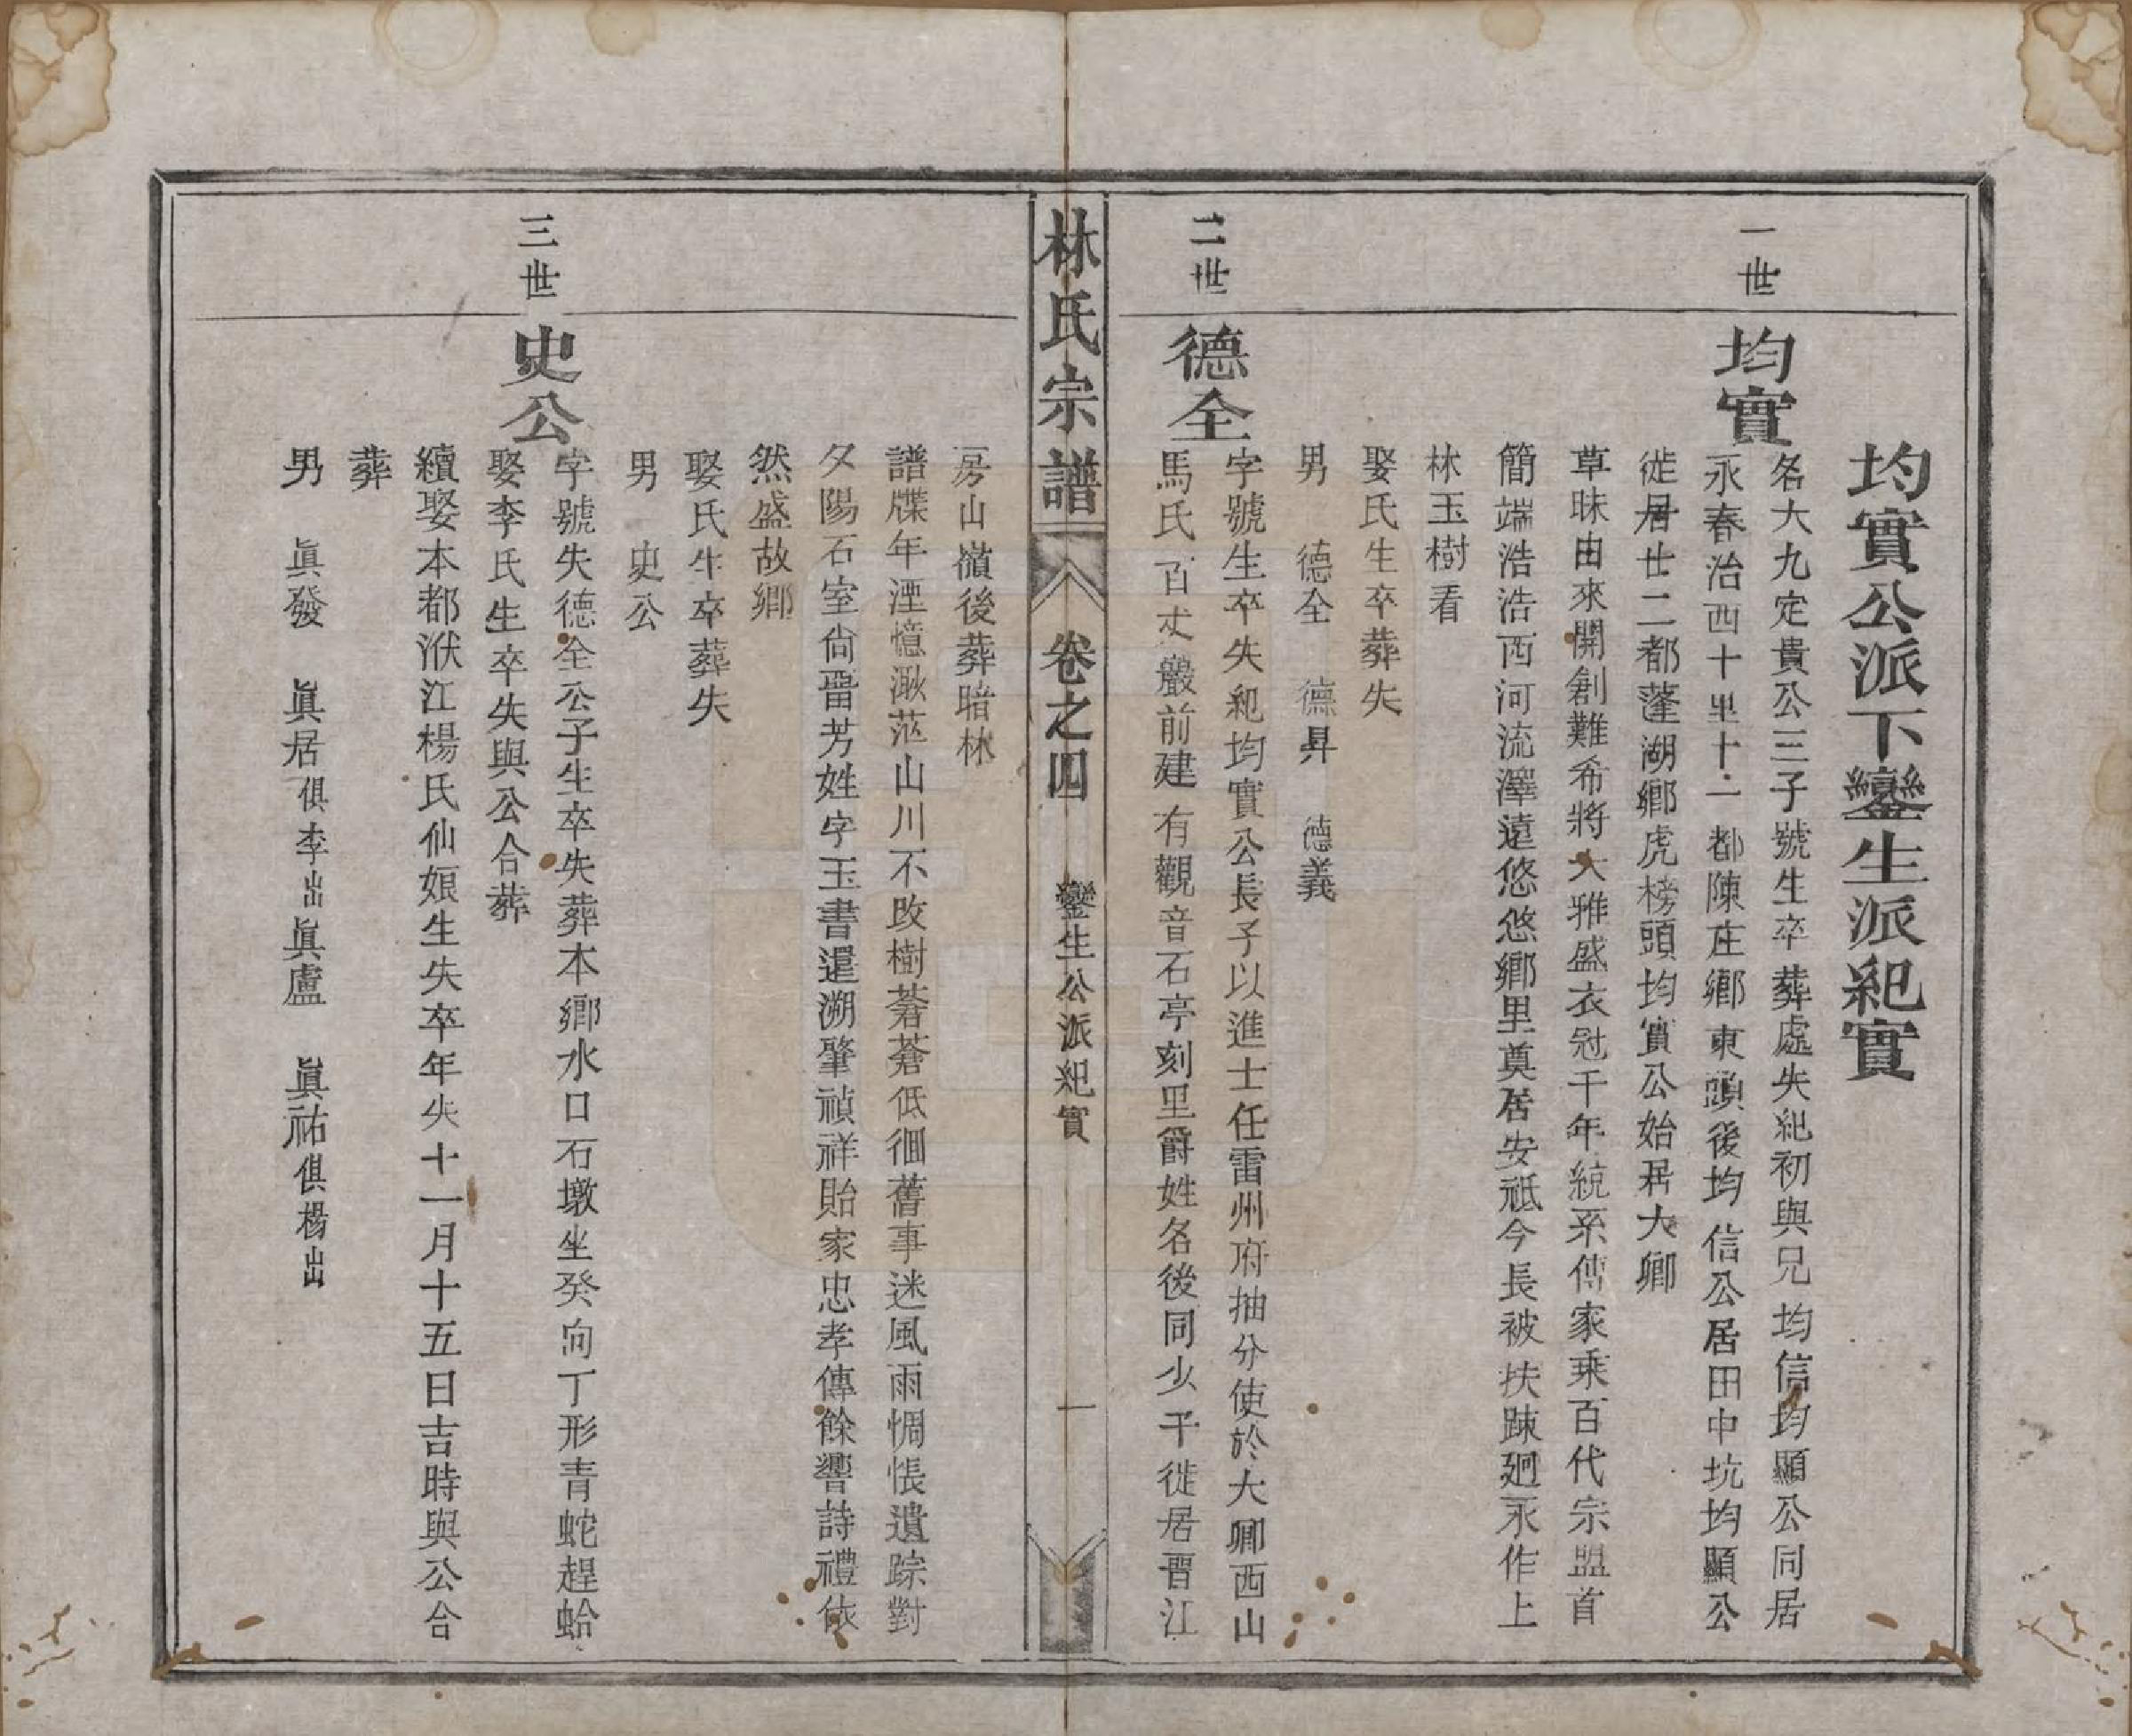 均實公派下鑾生派紀實
一世
均實
名大九定貴公三子號生卒葬處失紀初與兄均信均顯公同居
永春治西十里十二都陳庄鄉東頭後均信公居田中坑均顯公
徙居廿二都蓬湖鄉虎榜頭均實公始居大卿
草昧由來開創難希將大雅盛衣冠千年統系傳家乘百代宗盟首
簡端浩浩西河流澤遠悠悠鄉里奠居安祗今長被扶踈廻永作上
林玉樹看
娶氏生卒葬失
男 德全 德昇 德義
二世
德全
字號生卒失紀均實公長子以進士任雷州府抽分使於大卿西山
馬氏百丈巖前建有觀音石亭刻里爵姓名後同少千徙居晋江
林氏宗譜 卷之四 鑾生公派紀實 一
房山嶺後葬暗林
譜牒年湮憶湫茫山川不改樹蒼蒼低徊舊事迷風雨惆悵遺踪對
夕陽石室尙畱芳姓字玉書還溯肇禎祥貽家忠孝傳餘響詩禮依
然盛故鄉
娶氏生卒葬失
男 史公
三世
史公
字號失德全公子生卒失葬本鄉水口石墩坐癸向丁形青蛇趕蛤
娶李氏生卒失與公合葬
續娶本都洑江楊氏仙娘生失卒年失十一月十五日吉時與公合
葬
男 眞發 眞居俱李出眞盧 眞祐俱楊出